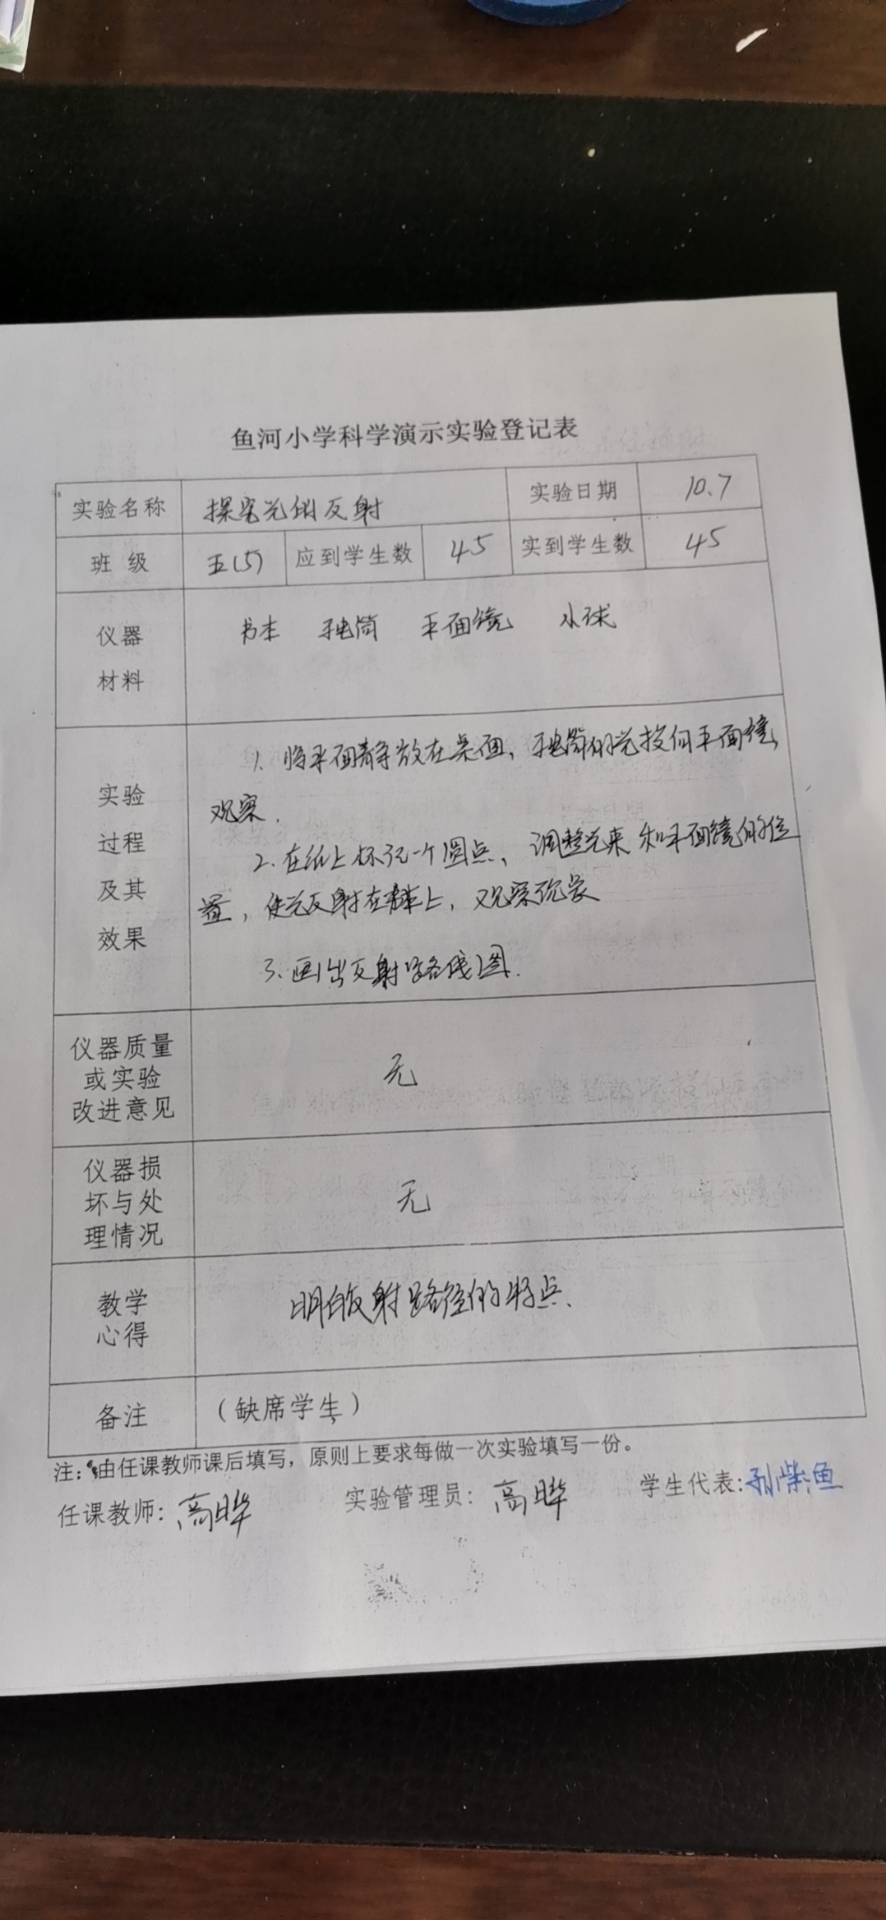 鱼河小学科学演示实验登记表
实验名称 探究光的反射 实验日期 10.7
班 级 五(5) 应到学生数 45 实到学生数 45
仪器 书本 手电筒 平面镜 小球
材料
1. 将平面静放在桌面、手电筒的光投向平面镜,
实验 观察.
过程 2. 在纸上标记一个圆点、调整光束和平面镜的位
及其 置,使光反射在书本上,观察现象
效果 3. 画出反射路线图.
仪器质量
或实验 无
改进意见
仪器损
坏与处 无
理情况
教学 明白反射路径的特点、
心得
备注 (缺席学生)
注: 由任课教师课后填写,原则上要求每做一次实验填写一份。
任课教师: 高晔 实验管理员: 高晔 学生代表: 孙柴鱼